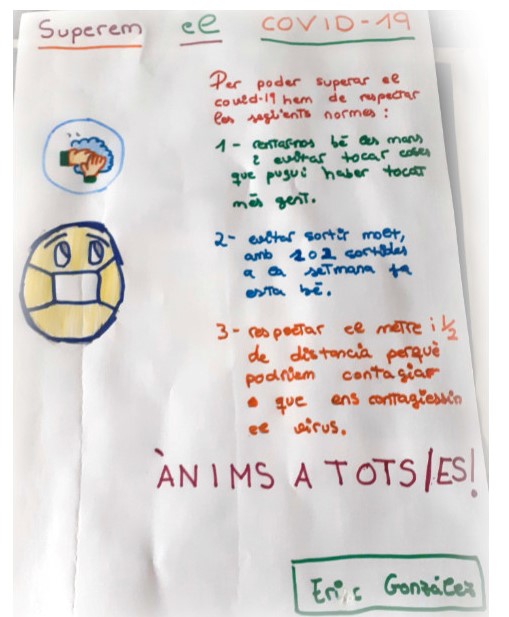 Superem el COVID-19
Per poder superar el
covid-19 hem de respectar
les següents normes:
1- rentarnos bé les mans
i evitar tocar coses
que pugui haber tocat
més gent.
2- evitar sortir molt,
amb 1 o 2 sortides
a la setmana ja
esta bé.
3- respectar el metre i 1/2
de distancia perquè
podriem contagiar
o que ens contagiessin
el virus.
ÀNIMS A TOTS/ES!
Eric González